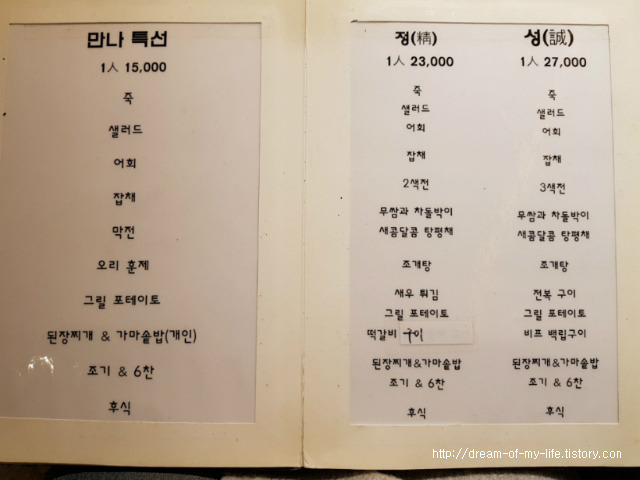 만나 특선
1人 15,000
죽
샐러드
어회
잡채
막전
오리 훈제
그릴 포테이토
된장찌개 & 가마솥밥(개인)
조기 & 6찬
후식
정(精)
1人 23,000
죽
샐러드
어회
잡채
2색전
무쌈과 차돌박이
새콤달콤 탕평채
조개탕
새우 튀김
그릴 포테이토
떡갈비 구이
된장찌개&가마솥밥
조기 & 6찬
후식
성(誠)
1人 27,000
죽
샐러드
어회
잡채
3색전
무쌈과 차돌박이
새콤달콤 탕평채
조개탕
전복 구이
그릴 포테이토
비프 백립구이
된장찌개&가마솥밥
조기 & 6찬
후식
http://dream-of-my-life.tistory.com